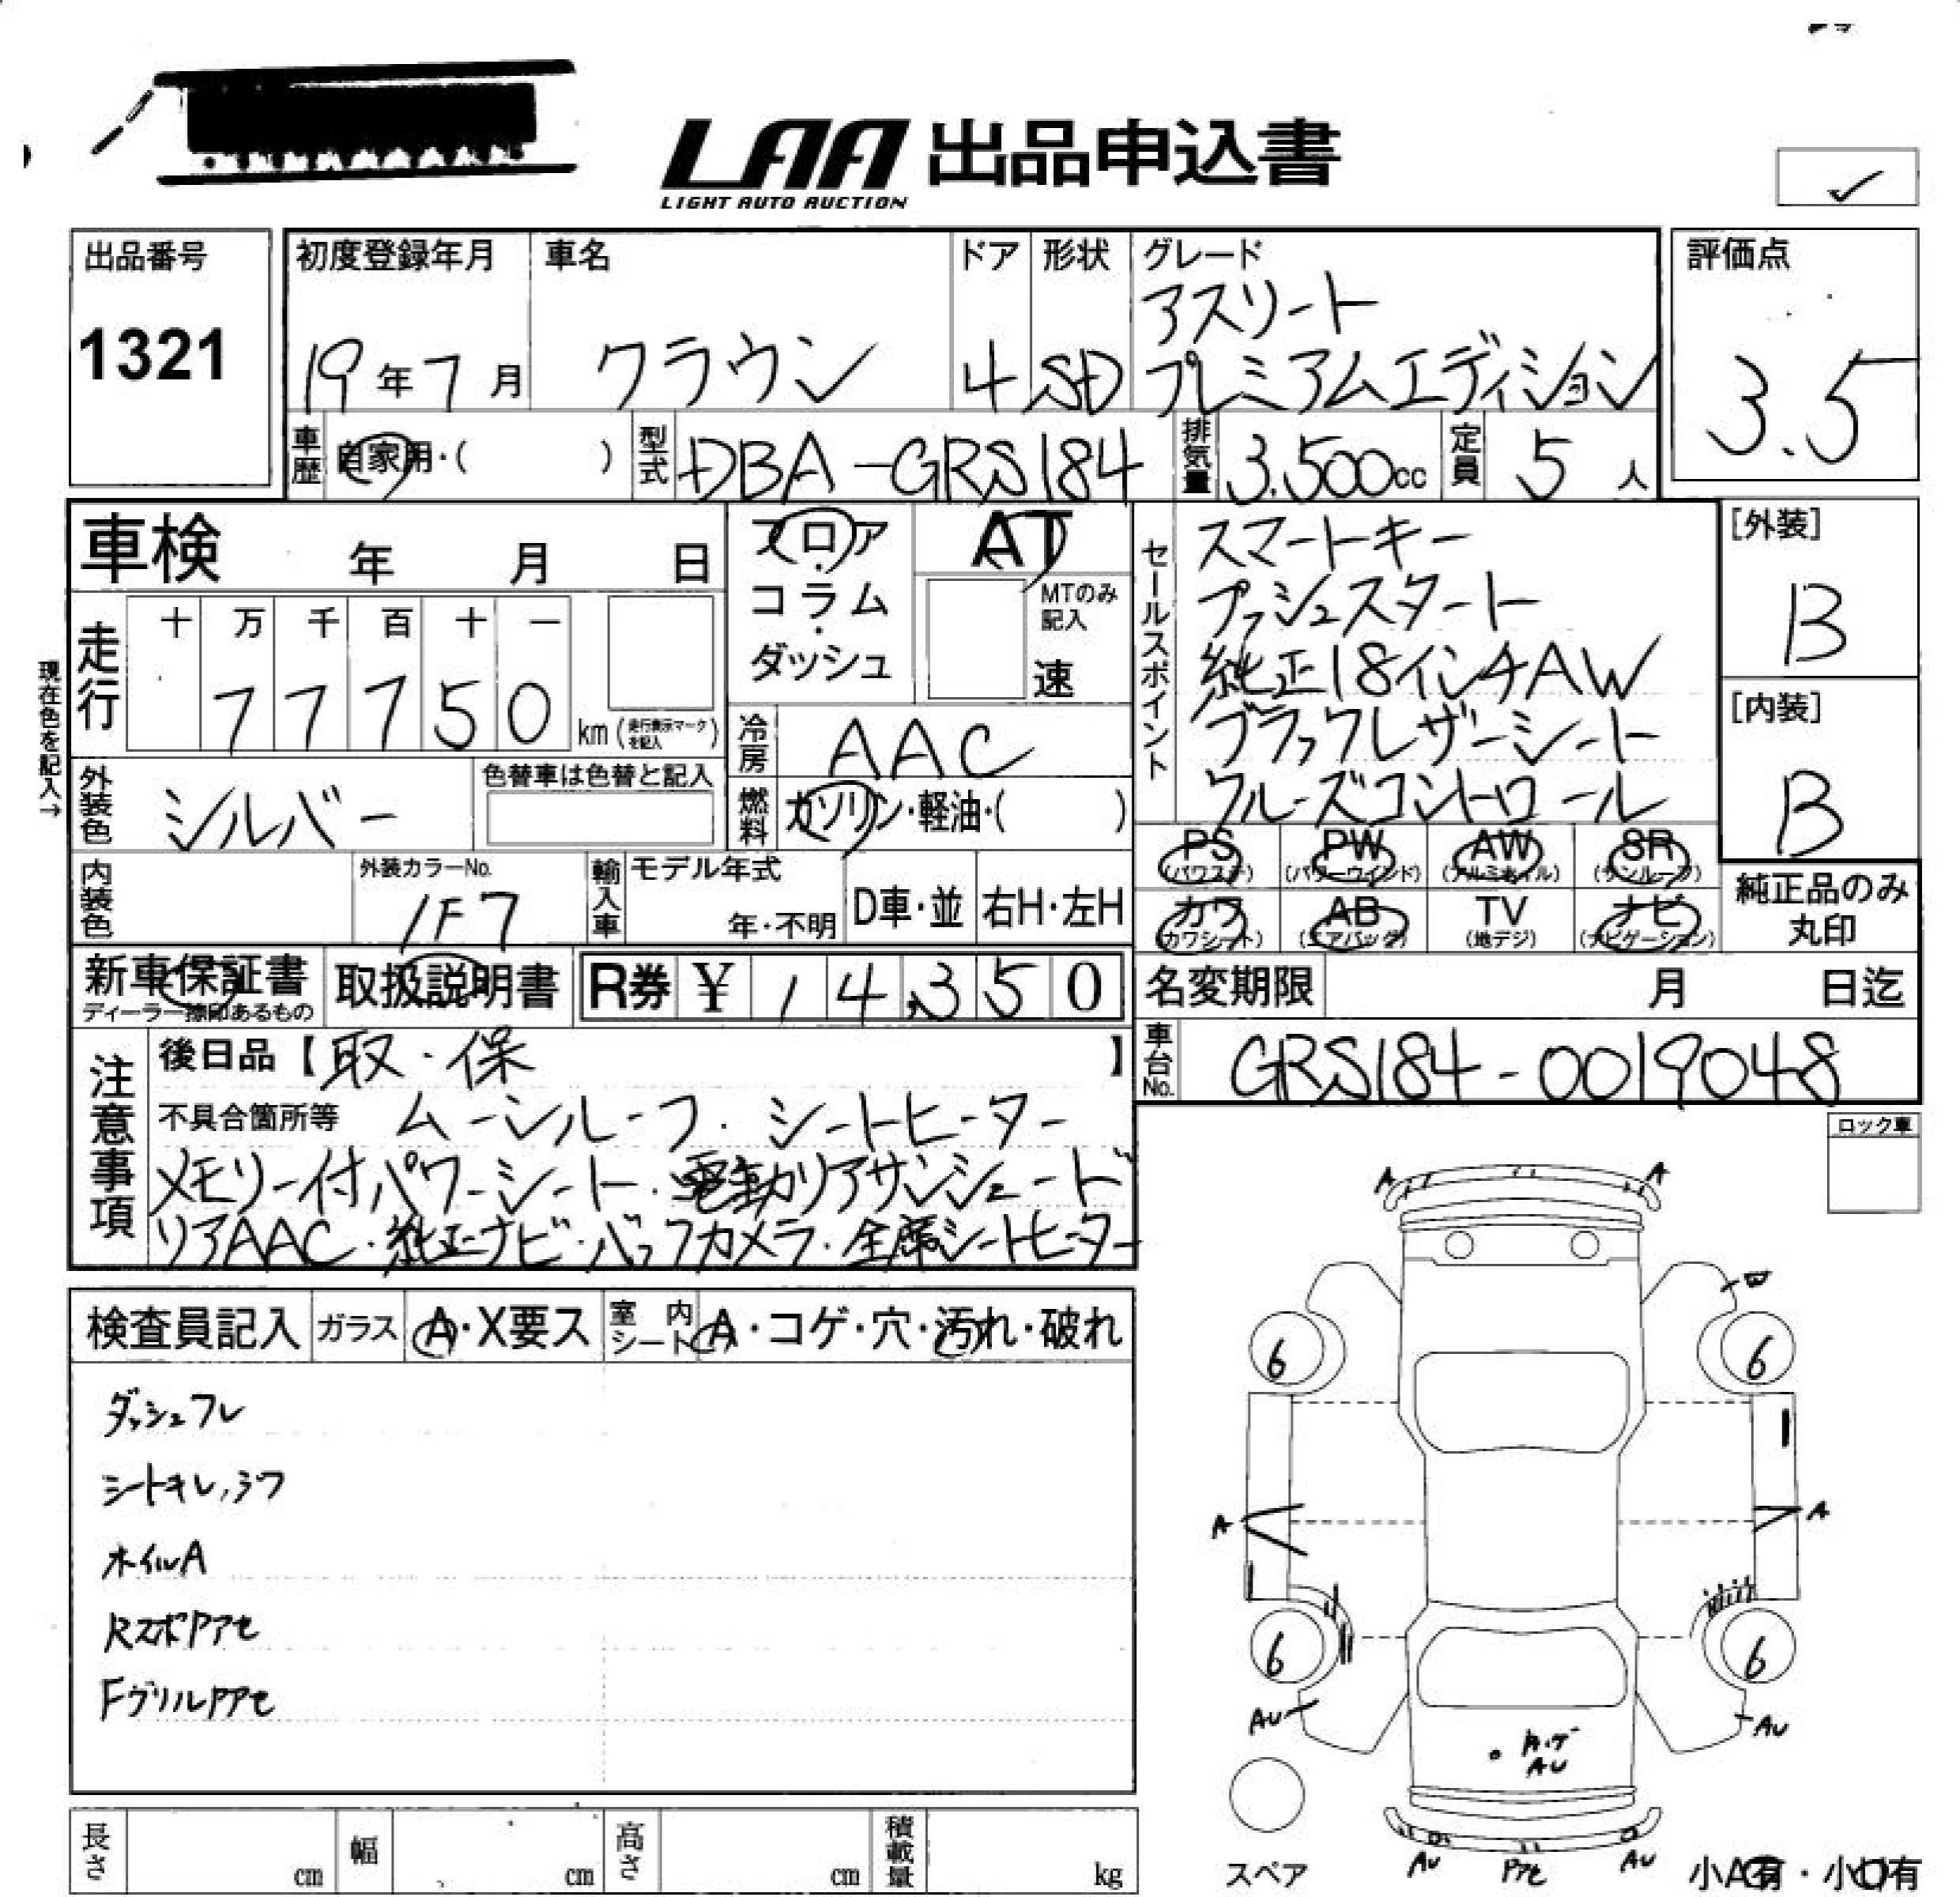 LAA 出品申込書
LIGHT AUTO AUCTION
出品番号
1321
初度登録年月
19年7月
車名
クラウン
ドア
4
形状
SD
グレード
アスリート
プレミアムエディション
評価点
3.5
車歴
自家用・( )
型式
DBA-GRS184
排気量
3.500cc
定員
5人
車検 年 月 日
フロア
・
コラム
・
ダッシュ
AT
MTのみ
記入
速
セールスポイント
スマートキー
プッシュスタート
純正18インチAW
ブラックレザーシート
クルーズコントロール
[外装]
B
[内装]
B
現在色を記入→
走行
十 万 千 百 十 一
7 7 7 5 0
km (走行表示マークを記入)
冷房
AAC
外装色
シルバー
色替車は色替と記入
燃料
ガソリン・軽油・( )
PS (パワステ)
PW (パワーウインド)
AW (アルミホイル)
SR (サンルーフ)
カワ (カワシート)
AB (エアバッグ)
TV (地デジ)
ナビ (ナビゲーション)
純正品のみ
丸印
内装色
外装カラーNo.
1F7
輸入車
モデル年式
年・不明
D車・並
右H・左H
新車保証書
ディーラー捺印あるもの
取扱説明書
R券 ¥ 14,350
名変期限 月 日迄
車台No.
GRS184-0019048
注意事項
後日品【取・保 】
不具合箇所等 ムーンルーフ. シートヒーター
メモリー付パワーシート. 電動リアサンシェード
リアAAC・純正ナビ・バックカメラ・全席シートヒーター
ロック車
検査員記入
ガラス
A・X要ス
室内シート
A・コゲ・穴・汚れ・破れ
ダッシュフレ
シートキレ,シワ
ホイルA
RスポPアセ
FグリルPアセ
A A
6 6
A A
6 6
AU AU
AU
AU Pアセ AU
スペア
小A有・小U有
長さ cm
幅 cm
高さ cm
積載量 kg